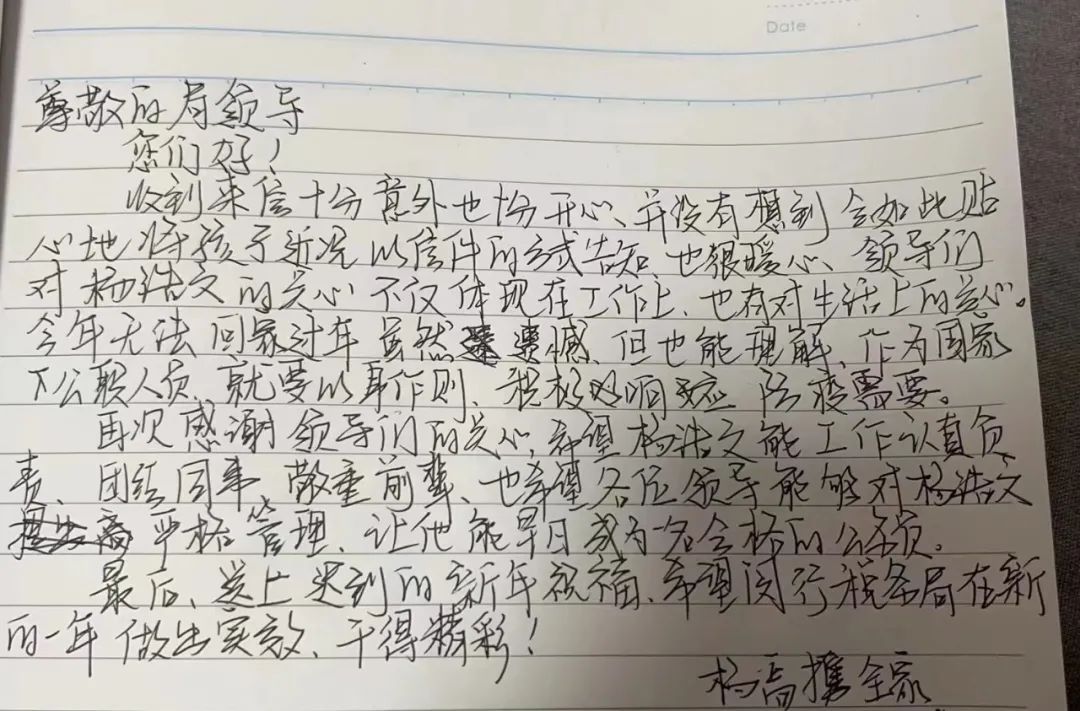 Date
尊敬的局领导
您们好！
收到来信十分意外也十分开心、并没有想到会如此贴
心地将孩子近况以信件的方式告知、也很暖心、领导们
对杨浩文的关心不仅体现在工作上、也有对生活上的关心。
今年无法回家过年虽然遗憾、但也能理解、作为国家
公职人员、就要以身作则、积极响应防疫需要。
再次感谢领导们的关心、希望杨浩文能工作认真负
责、团结同事、敬重前辈、也希望各位领导能够对杨浩文
严格管理、让他能早日成为一名合格的公务员。
最后、送上迟到的新年祝福、希望闵行税务局在新
的一年做出实效、干得精彩！
杨高携全家